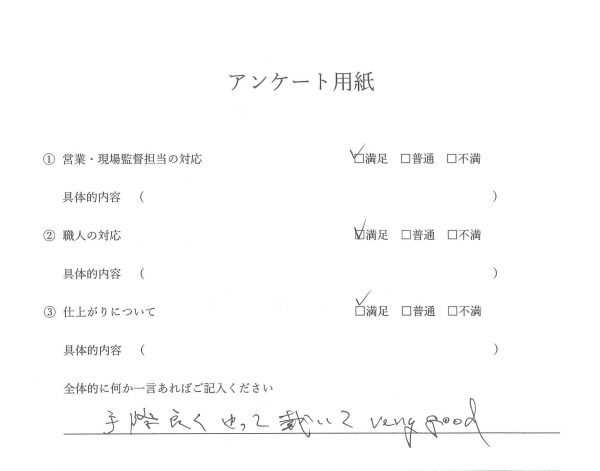 アンケート用紙
① 営業・現場監督担当の対応 ☑満足 □普通 □不満
具体的内容 （ ）
② 職人の対応 ☑満足 □普通 □不満
具体的内容 （ ）
③ 仕上がりについて ☑満足 □普通 □不満
具体的内容 （ ）
全体的に何か一言あればご記入ください
手際良くやって戴いて very good